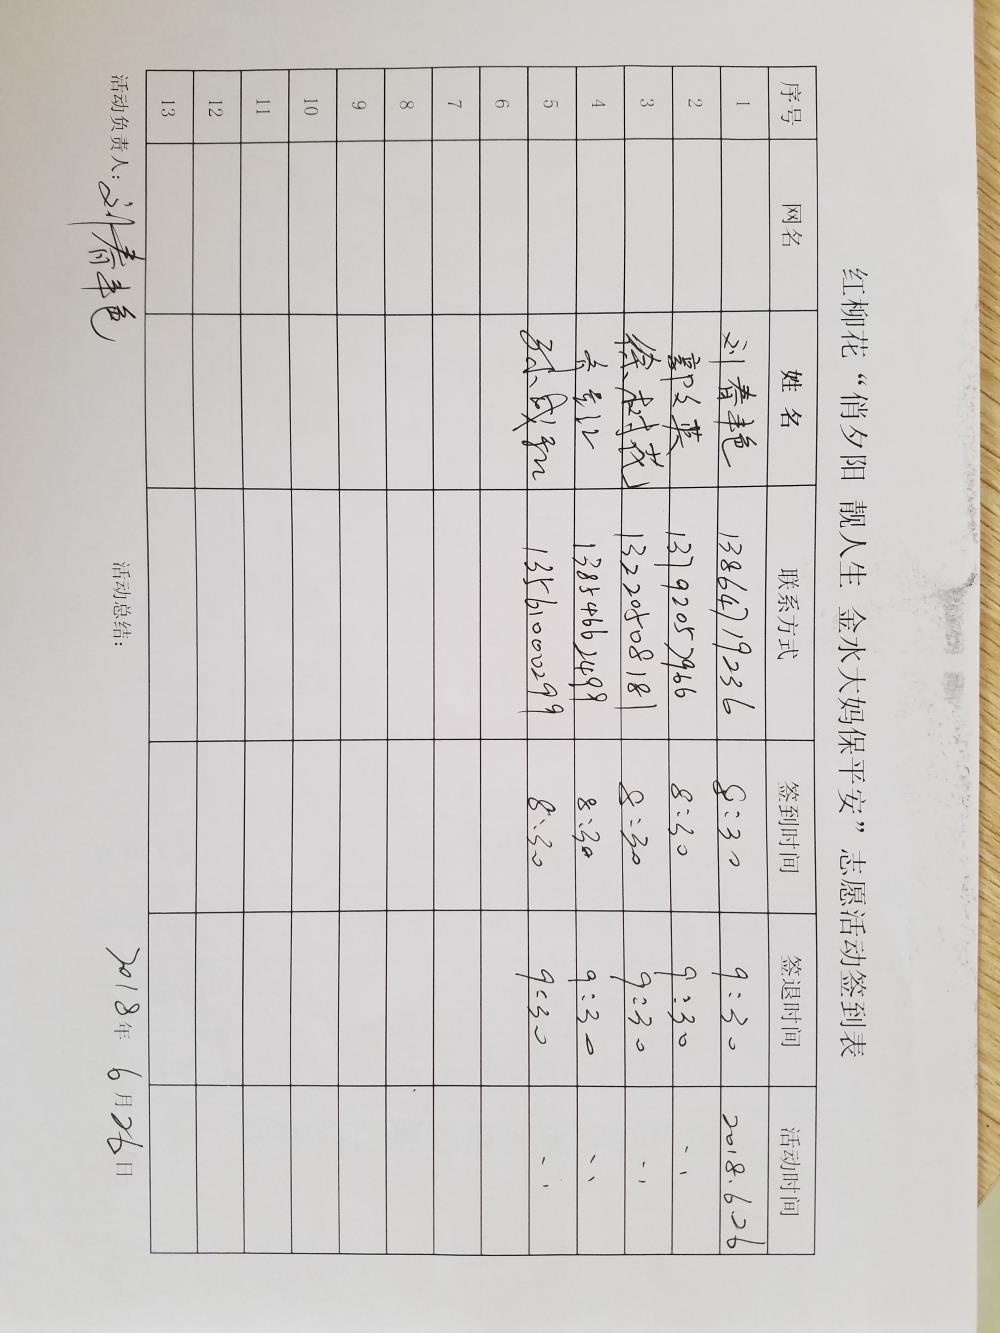 红柳花“俏夕阳 靓人生 金水大妈保平安”志愿活动签到表
序号 网名 姓名 联系方式 签到时间 签退时间 活动时间
1 刘春艳 13864719236 8:30 9:30 2018.6.26
2 郭文英 13792057966 8:30 9:30 〃
3 徐树茂 13220508181 8:30 9:30 〃
4 13854662499 8:30 9:30 〃
5 13561000299 8:30 9:30 〃
6
7
8
9
10
11
12
13
活动负责人：刘春艳 活动总结： 2018年 6月26日